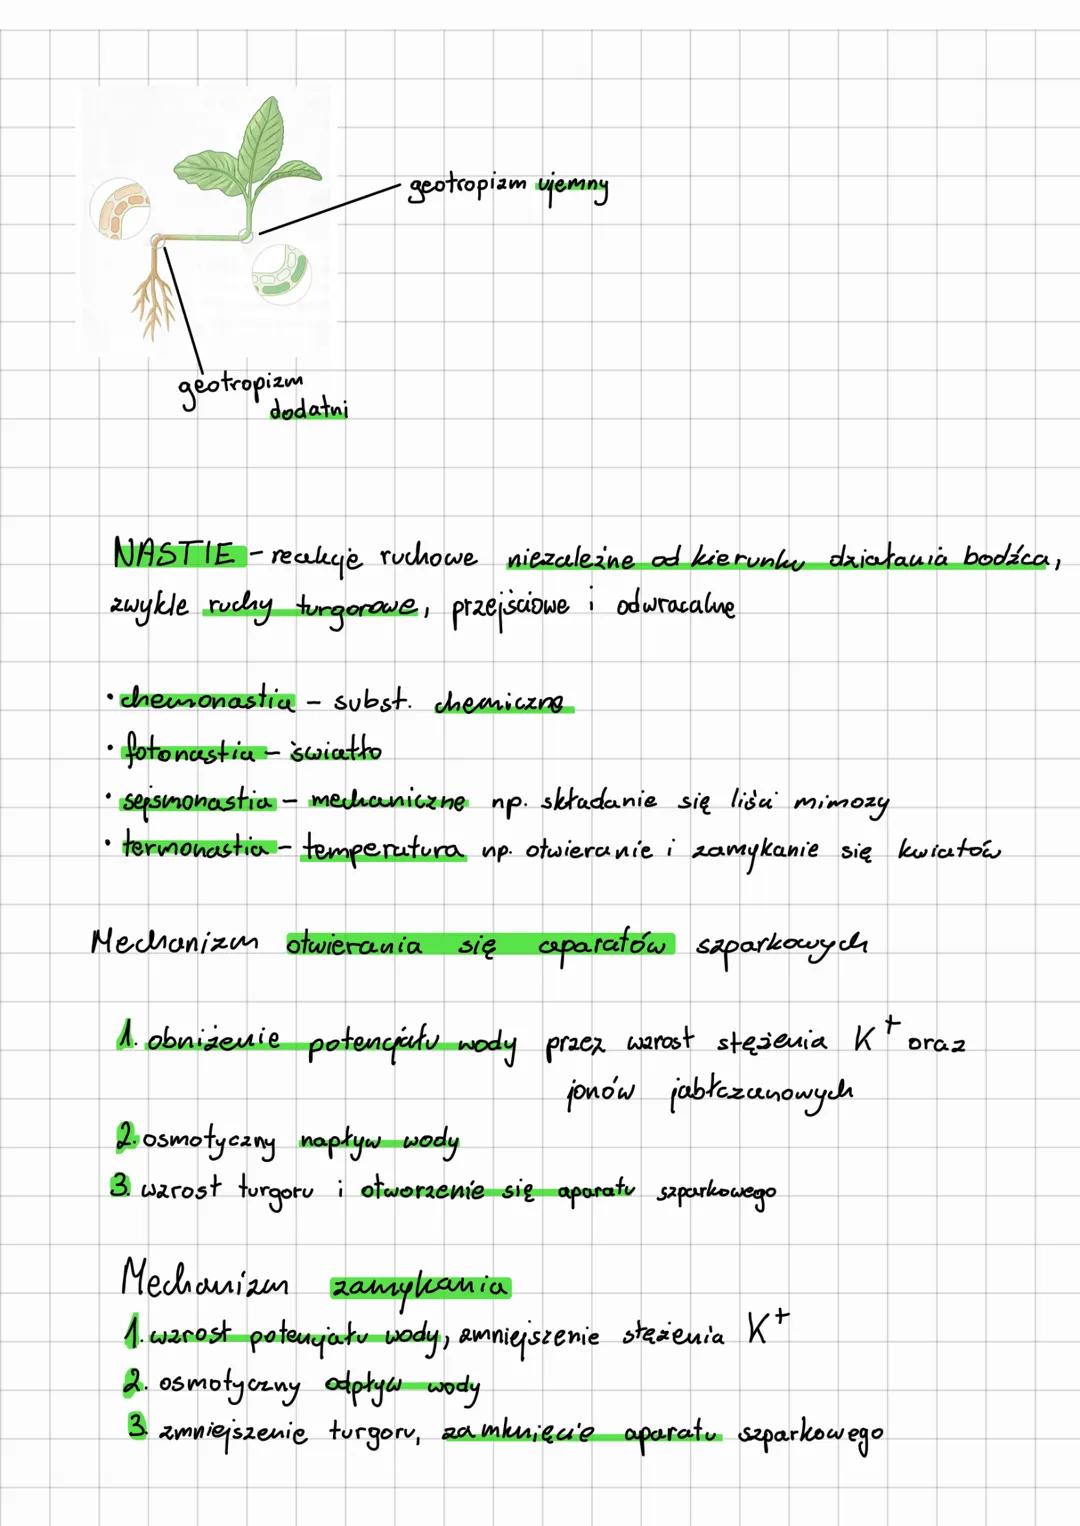 geotropizm ujemny
geotropizm
dodatni
NASTIE - reakcje ruchowe niezależne od kierunku działania bodźca,
zwykle ruchy turgorowe, przejściowe i odwracalne
• chemonastia - subst. chemiczne
• fotonastia - światło
• sejsmonastia - mechaniczne np. składanie się liści mimozy
• termonastia - temperatura np. otwieranie i zamykanie się kwiatów
Mechanizm otwierania się aparatów szparkowych
1. obniżenie potencjału wody przez wzrost stężenia K⁺ oraz
jonów jabłczanowych
2. osmotyczny napływ wody
3. wzrost turgoru i otworzenie się aparatu szparkowego
Mechanizm zamykania
1. wzrost potencjału wody, zmniejszenie stężenia K⁺
2. osmotyczny odpływ wody
3. zmniejszenie turgoru, zamknięcie aparatu szparkowego